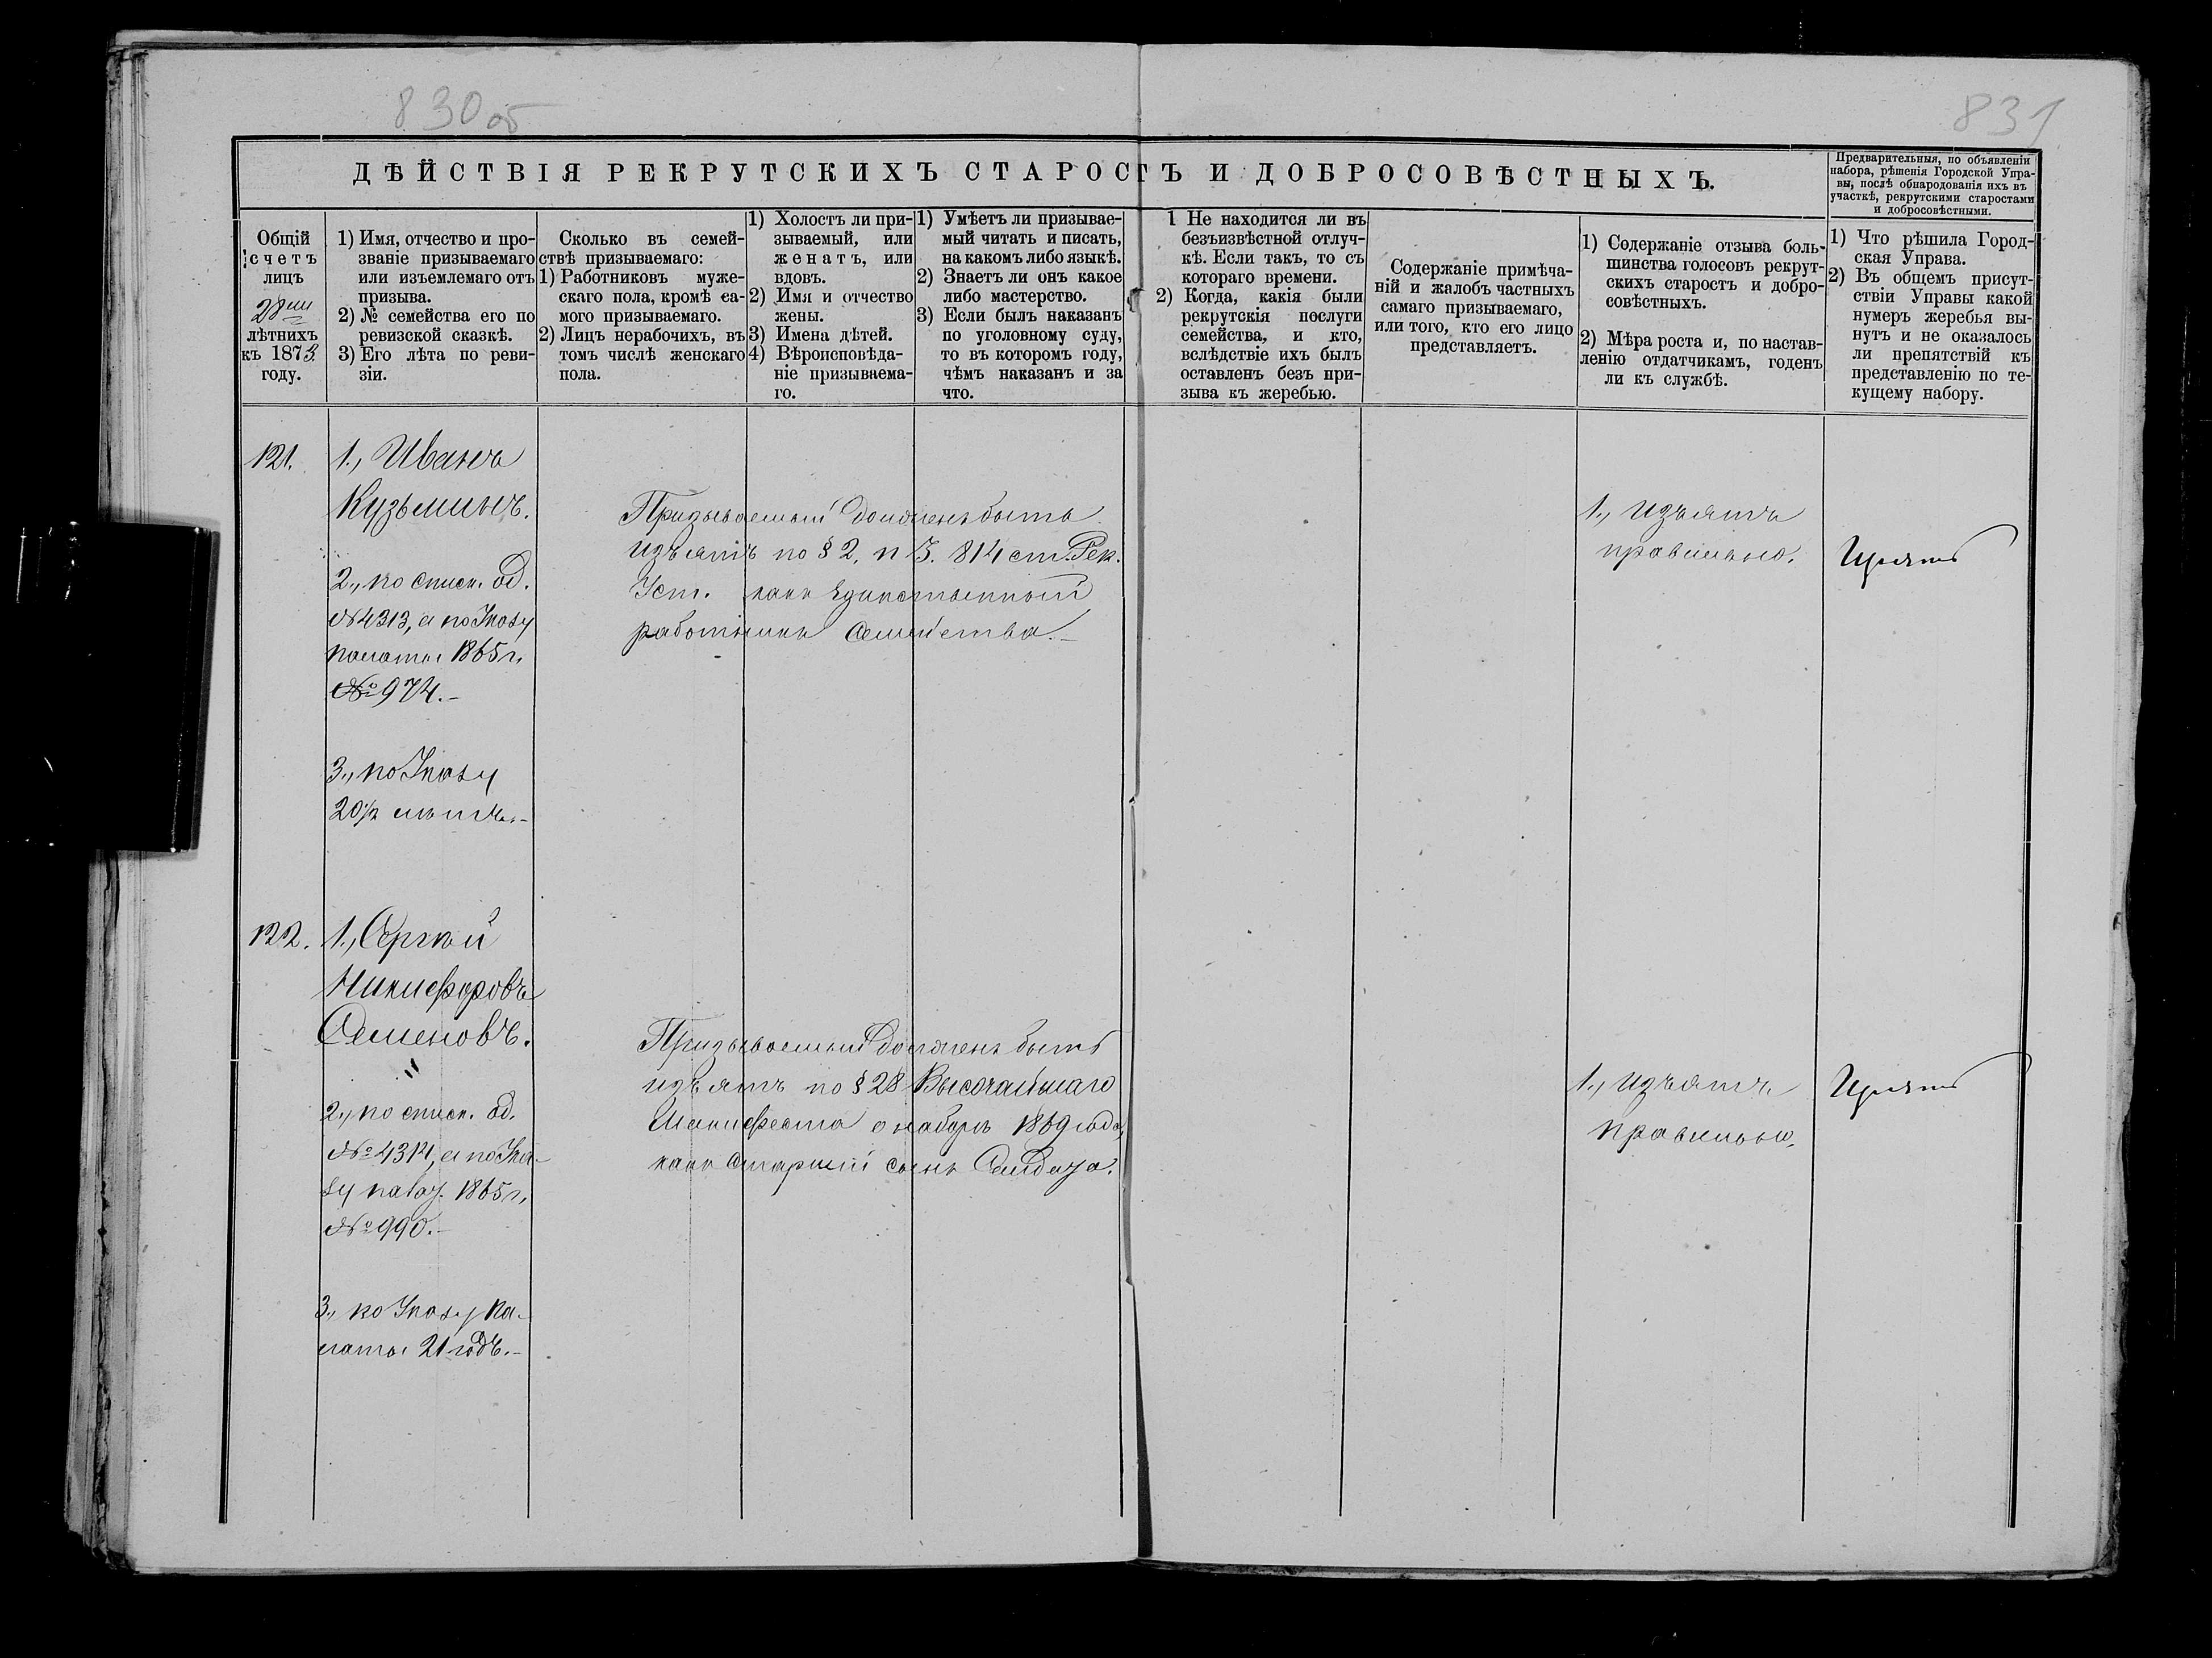 830 об
831
ДѢЙСТВІЯ РЕКРУТСКИХЪ СТАРОСТЪ И ДОБРОСОВѢСТНЫХЪ.
Предварительныя, по объявленіи
набора, рѣшенія Городской Упра-
вы, послѣ обнародованія ихъ въ
участкѣ, рекрутскими старостами
и добросовѣстными.
Общій
счетъ
лицъ
28ми
лѣтнихъ
къ 1873
году.
1) Имя, отчество и про-
званіе призываемаго
или изъемлемаго отъ
призыва.
2) № семейства его по
ревизской сказкѣ.
3) Его лѣта по реви-
зіи.
Сколько въ семей-
ствѣ призываемаго:
1) Работниковъ муже-
скаго пола, кромѣ са-
мого призываемаго.
2) Лицъ нерабочихъ, въ
томъ числѣ женскаго
пола.
1) Холостъ ли при-
зываемый, или
женатъ, или
вдовъ.
2) Имя и отчество
жены.
3) Имена дѣтей.
4) Вѣроисповѣда-
ніе призываема-
го.
1) Умѣетъ ли призывае-
мый читать и писать,
на какомъ либо языкѣ.
2) Знаетъ ли онъ какое
либо мастерство.
3) Если былъ наказанъ
по уголовному суду,
то въ которомъ году,
чѣмъ наказанъ и за
что.
1 Не находится ли въ
безъизвѣстной отлуч-
кѣ. Если такъ, то съ
котораго времени.
2) Когда, какія были
рекрутскія послуги
семейства, и кто,
вслѣдствіе ихъ былъ
оставленъ безъ при-
зыва къ жеребью.
Содержаніе примѣча-
ній и жалобъ частныхъ
самаго призываемаго,
или того, кто его лицо
представляетъ.
1) Содержаніе отзыва боль-
шинства голосовъ рекрут-
скихъ старостъ и добро-
совѣстныхъ.
2) Мѣра роста и, по настав-
ленію отдатчикамъ, годенъ
ли къ службѣ.
1) Что рѣшила Город-
ская Управа.
2) Въ общемъ присут-
ствіи Управы какой
нумеръ жеребья вы-
нутъ и не оказалось
ли препятствій къ
представленію по те-
кущему набору.
121.
1., Иванъ
Кузьминъ.
2., по списк. од.
№4313, а по Указу
палаты 1865 г.
№ 974.-
3., по Указу
20½ лѣтъ.-
Призываемый долженъ быть
изъятъ по § 2, п 3. 814 ст. Рек.
Уст. какъ единственный
работникъ семейства.-
1., Изъятъ
правильно.
Изъятъ
122.
1., Сергѣй
Никифоровъ
Семеновъ.
2., по списк. од.
№ 4314, а по Ука-
зу палат. 1865 г.
№ 990.-
3., по Указу па-
латы 21 годъ.-
Призываемый долженъ быть
изъятъ по § 28 Высочайшаго
Манифеста о наборѣ 1869 года,
какъ старшій сынъ Солдата.
1., Изъятъ
правильно.
Изъятъ